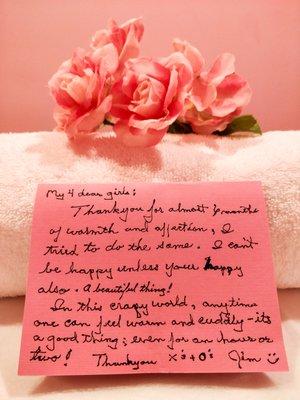 My 4 dear girls;
Thankyou for almost 3 months
of warmth and affection, I
tried to do the same. I can't
be happy unless your happy
also. A beautiful thing!
In this crazy world, anytime
one can feel warm and cuddly - its
a good thing; even for an hour or
two! Thankyou X's + O's Jim